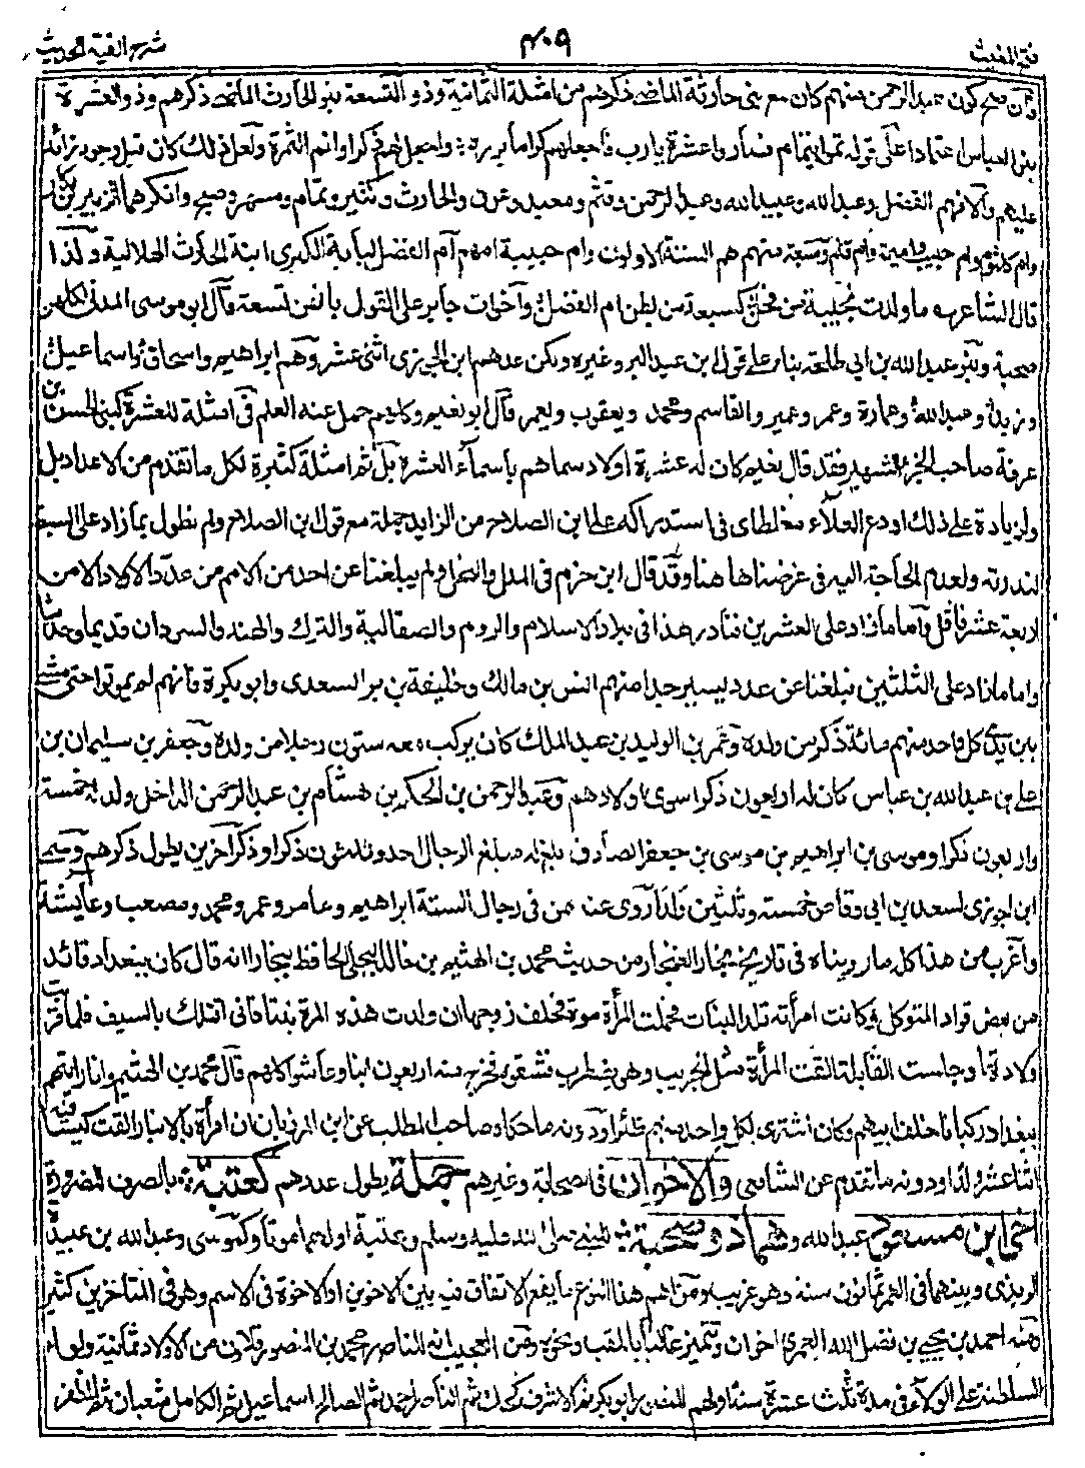 فتح المغيث ٤٠٩ شرح الفية الحديث
كون عبد الرحمن منهم كان مع بنى حارثة الماضى ذكرهم من امثلة الثمانية وذو التسعة بنو الحارث الماضى ذكرهم وذو العشرة
بنو العباس اعتمادا على قوله تموا بتمام فصاروا عشرة يارب فاجعلهم كراما بررة واجعل لهم ذكرا وانم الثمرة ولعل ذلك كان قبل وجود زائد
عليهم والا فهم الفضل وعبد الله وعبيد الله وعبد الرحمن وقثم ومعبد وعون والحارث وكثير وتمام ومسهر وصبيح وانكرهما الزبير بن بكار
وام كلثوم وام حبيب وامينة وام تميم وتسعة منهم هم الستة الاولون وام حبيبة امهم ام الفضل لبابة الكبرى ابنة الحارث الهلالية ولذا
قال الشاعر ما ولدت نجيبة من فحل كسبعة من بطن ام الفضل واخوات جابر على القول بانهن تسعة قال ابو موسى المدنى لكلهن
صحبة وبنو عبد الله بن ابى طلحة بناء على قول ابن عبد البر وغيره ولكن عدهم ابن الجوزى اثنى عشر وهم ابراهيم واسحاق واسماعيل
وزيد وعبد الله وعمارة وعمر وعمير والقاسم ومحمد ويعقوب ويعمر قال ابو نعيم وكلهم حمل عنه العلم فى امثلة للعشرة كبنى الحسن بن
عرفة صاحب الجزء الشهير فقد قال بعضهم كان له عشرة اولاد سماهم باسماء العشرة بل ثم امثلة كثيرة لكل ما تقدم من الاعداد بل
ولزيادة على ذلك اودع العلاء مغلطاى فى استدراكه على ابن الصلاح من الزايد جملة مع قول ابن الصلاح ولم نطول بما زاد على السبعة
لندرته ولعدم الحاجة اليه فى غرضنا هاهنا وقد قال ابن حزم فى الملل والنحل ولم يبلغنا عن احد من الامم من عدد الاولاد الا من
اربعة عشر فاقل واما ما زاد على العشرين فنادر هذا فى بلاد الاسلام والروم والصقالبة والترك والهند والسودان قديما وحديثا
واما ما زاد على الثلثين فبلغنا عن عدد يسير جدا منهم انس بن مالك وخليفة بن بر السعدى وابو بكرة فانهم لم يموتوا حتى مشى
بين يدى كل واحد منهم مائة ذكر من ولده وعمر بن الوليد بن عبد الملك كان يركب معه ستون رجلا من ولده وجعفر بن سليمان بن
على بن عبد الله بن عباس كان له اربعون ذكرا سوى اولادهم وعبد الرحمن بن الحكم بن هشام بن عبد الرحمن الداخل ولد له خمسة
واربعون ذكرا وموسى بن ابراهيم بن موسى بن جعفر الصادق بلغ له مبلغ الرجال احد وثلثون ذكرا وذكر آخرين يطول ذكرهم وسمى
ابن الجوزى لسعد بن ابى وقاص خمسة وثلثين ولدا روى عنه ممن فى رجال الستة ابراهيم وعامر وعمر ومحمد ومصعب وعايشة
واغرب من هذا كله ما رويناه فى تاريخ بخارا لغنجار من حديث محمد بن الهيثم بن خالد البجلى الحافظ ببخارا انه قال كان ببغداد قائد
من بعض قواد المتوكل وكانت امرأته تلد البنات فحملت المرأة مرة فحلف زوجها ان ولدت هذه المرة بنتا فانى اقتلك بالسيف فلما قربت
ولادتها وجلست القابلة القت المرأة مثل الجريب وهو يضطرب فشقوه فخرج منه اربعون ابنا وعاشوا كلهم قال محمد بن الهيثم وانا رايتهم
ببغداد ركبانا خلف ابيهم وكان اشترى لكل واحد منهم ظئرا ودونه ما حكاه صاحب المطلب عن ابن المرزبان ان امرأة بالانبار القت كيسا فيه
اثنا عشر ولدا ودونه ما تقدم عن الشافعى والاخوان فى الصحابة وغيرهم جملة يطول عددهم كعتبة بالصرف للضرورة
اخى ابن مسعود عبد الله وهما ذو صحبة للنبى صلى الله عليه وسلم وعتبة اولهما موتا وكموسى وعبد الله بن عبيدة
الربذى وبينهما فى العمر ثمانون سنة وهو غريب ومن اهم هذا النوع ما يقع الاتفاق فيه بين الاخوين او الاخوة فى الاسم وهو فى المتاخرين كثير
ومنه احمد بن يحيى بن فضل الله العمرى اخوان وتميز غالبا باللقب ونحوه ومن العجيب انه للناصر محمد بن المنصور قلاون من الاولاد ثمانية ولوا
السلطنة على الولاء فى مدة ثلث عشرة سنة اولهم المنصور ابو بكر ثم الاشرف كجك ثم الناصر احمد ثم الصالح اسماعيل ثم الكامل شعبان ثم المظفر